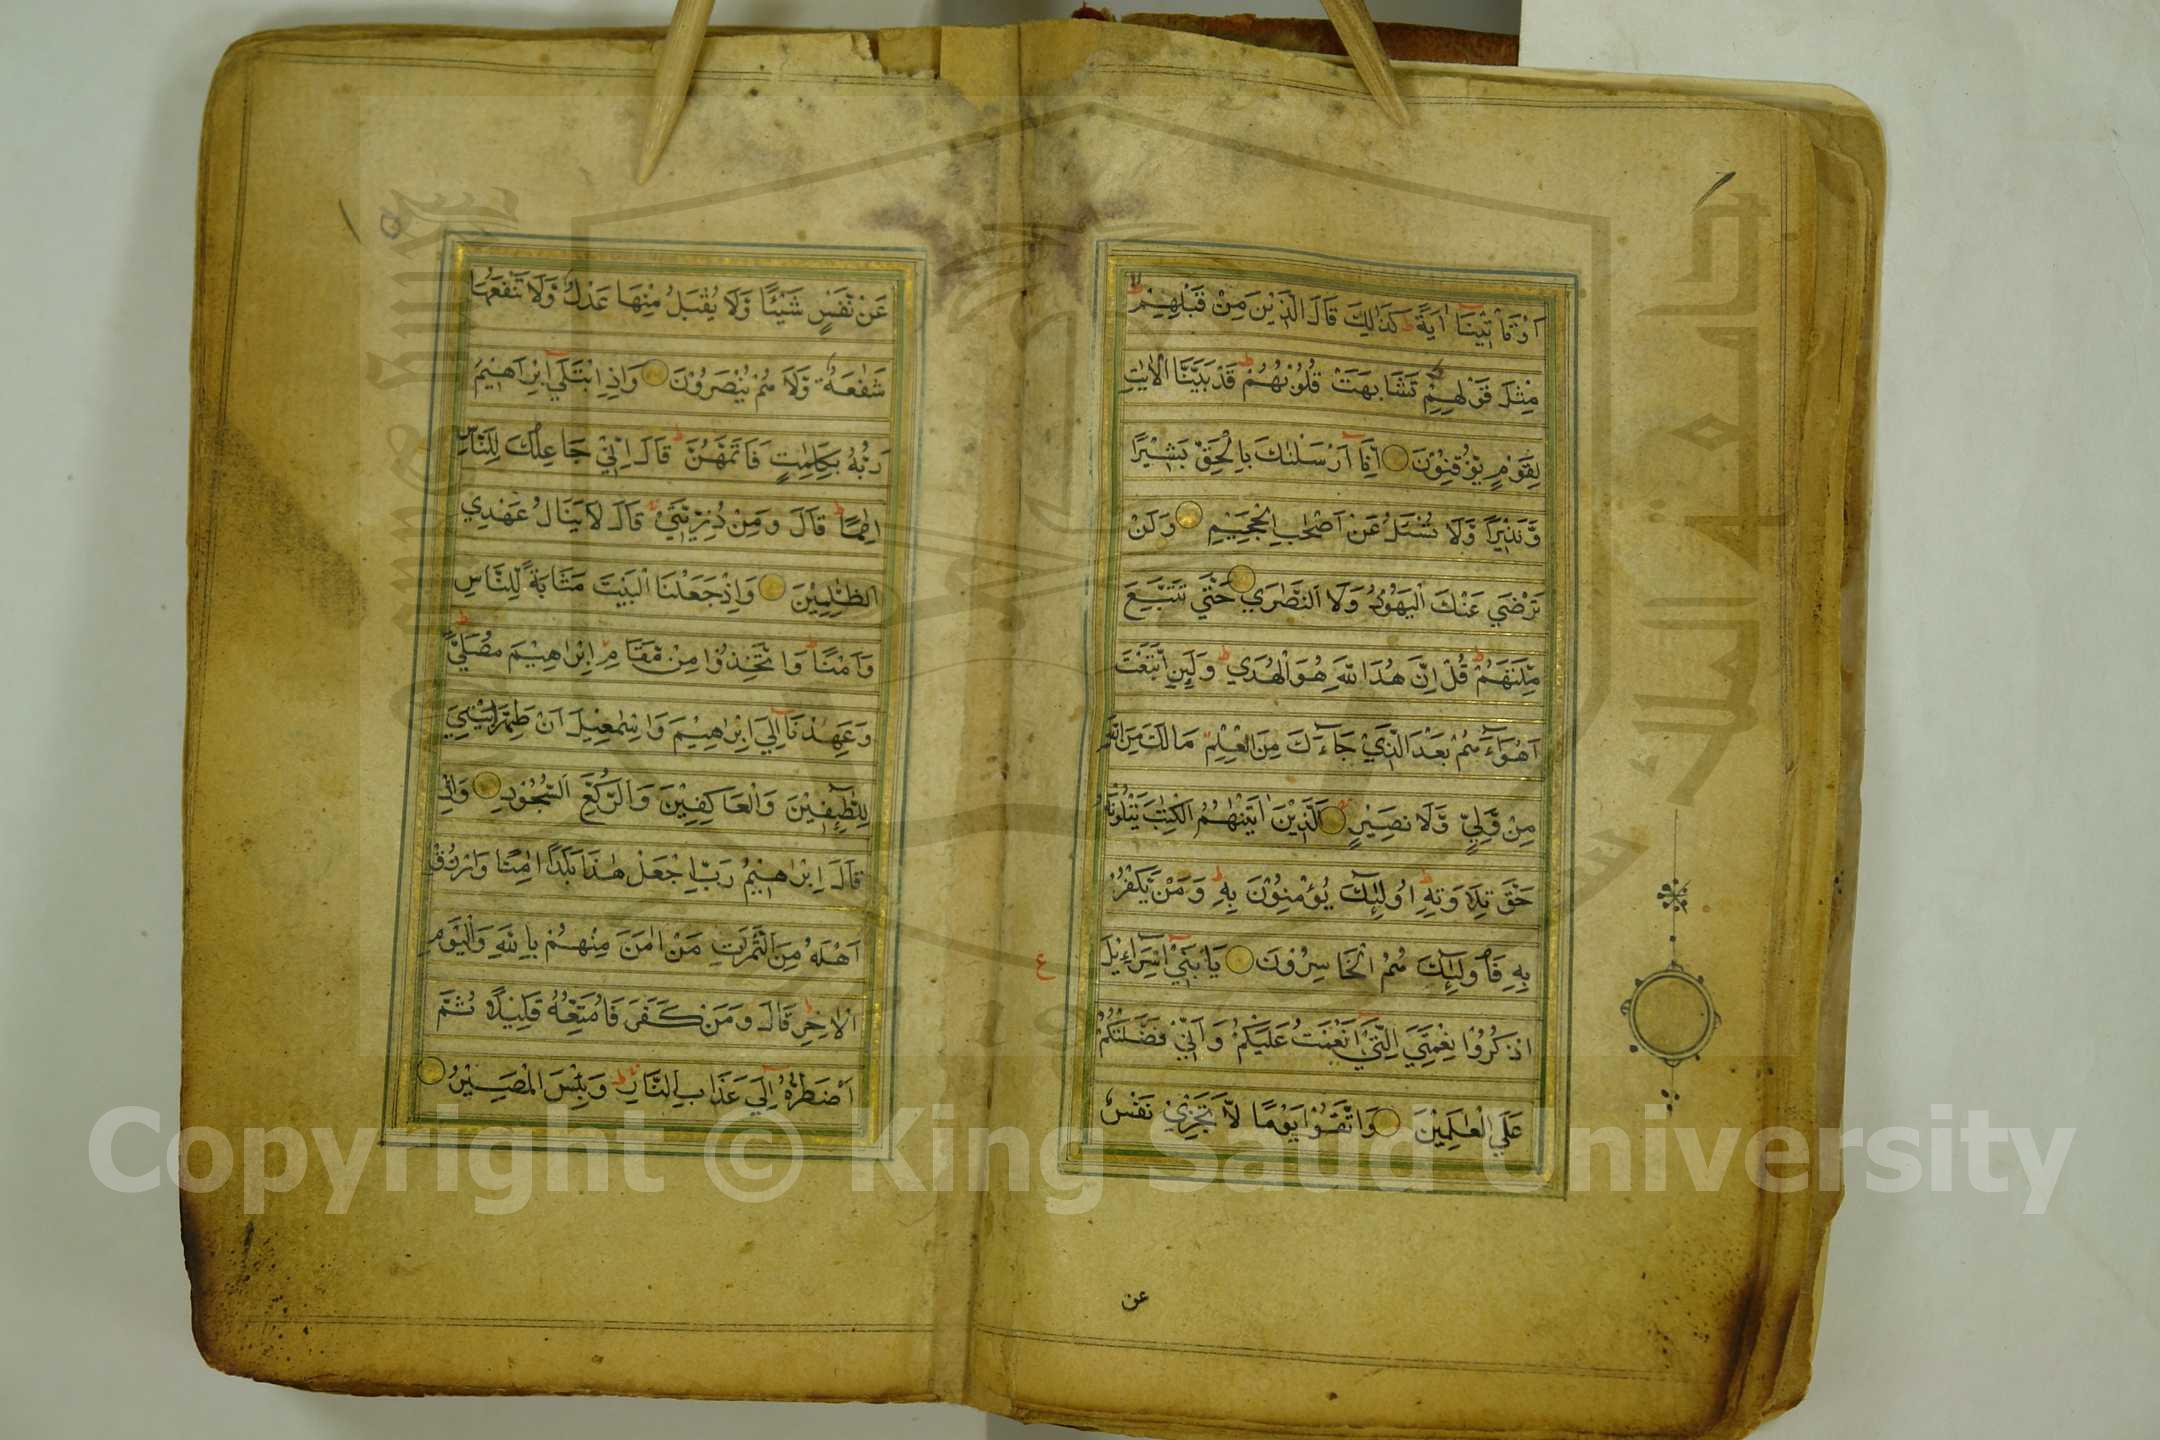 اَوْ تَاْتِيْنَا اٰيَةٌ كَذٰلِكَ قَالَ الَّذِيْنَ مِنْ قَبْلِهِمْ
مِثْلَ قَوْلِهِمْ تَشَابَهَتْ قُلُوْبُهُمْ قَدْ بَيَّنَّا الْاٰيٰتِ
لِقَوْمٍ يُّوْقِنُوْنَ اِنَّا اَرْسَلْنٰكَ بِالْحَقِّ بَشِيْرًا
وَّنَذِيْرًا وَّلَا تُسْئَلُ عَنْ اَصْحٰبِ الْجَحِيْمِ وَلَنْ
تَرْضٰي عَنْكَ الْيَهُوْدُ وَلَا النَّصٰرٰي حَتّٰي تَتَّبِعَ
مِلَّتَهُمْ قُلْ اِنَّ هُدَا اللّٰهِ هُوَ الْهُدٰي وَلَئِنِ اتَّبَعْتَ
اَهْوَآءَهُمْ بَعْدَ الَّذِيْ جَآءَكَ مِنَ الْعِلْمِ مَالَكَ مِنَ اللّٰهِ
مِنْ وَّلِيٍّ وَّلَا نَصِيْرٍ اَلَّذِيْنَ اٰتَيْنٰهُمُ الْكِتٰبَ يَتْلُوْنَهٗ
حَقَّ تِلَاوَتِهٖ اُولٰٓئِكَ يُؤْمِنُوْنَ بِهٖ وَمَنْ يَّكْفُرْ
بِهٖ فَاُولٰٓئِكَ هُمُ الْخَاسِرُوْنَ يَابَنِيْ اِسْرَآءِيْلَ
اذْكُرُوْا نِعْمَتِيَ الَّتِيْ اَنْعَمْتُ عَلَيْكُمْ وَاَنِّيْ فَضَّلْتُكُمْ
عَلَي الْعٰلَمِيْنَ وَاتَّقُوْا يَوْمًا لَّا تَجْزِيْ نَفْسٌ
ع
عن
عَنْ نَّفْسٍ شَيْئًا وَّلَا يُقْبَلُ مِنْهَا عَدْلٌ وَّلَا تَنْفَعُهَا
شَفَاعَةٌ وَّلَا هُمْ يُنْصَرُوْنَ وَاِذِ ابْتَلٰٓي اِبْرَاهِيْمَ
رَبُّهٗ بِكَلِمٰتٍ فَاَتَمَّهُنَّ قَالَ اِنِّيْ جَاعِلُكَ لِلنَّاسِ
اِمَامًا قَالَ وَمِنْ ذُرِّيَّتِيْ قَالَ لَا يَنَالُ عَهْدِي
الظّٰلِمِيْنَ وَاِذْ جَعَلْنَا الْبَيْتَ مَثَابَةً لِّلنَّاسِ
وَاَمْنًا وَاتَّخِذُوْا مِنْ مَّقَامِ اِبْرَاهِيْمَ مُصَلًّي
وَعَهِدْنَآ اِلٰٓي اِبْرٰهِيْمَ وَاِسْمٰعِيْلَ اَنْ طَهِّرَا بَيْتِيَ
لِلطَّآئِفِيْنَ وَالْعَاكِفِيْنَ وَالرُّكَّعِ السُّجُوْدِ وَاِذْ
قَالَ اِبْرٰهِيْمُ رَبِّ اجْعَلْ هٰذَا بَلَدًا اٰمِنًا وَارْزُقْ
اَهْلَهٗ مِنَ الثَّمَرٰتِ مَنْ اٰمَنَ مِنْهُمْ بِاللّٰهِ وَالْيَوْمِ
الْاٰخِرِ قَالَ وَمَنْ كَفَرَ فَاُمَتِّعُهٗ قَلِيْلًا ثُمَّ
اَضْطَرُّهٗ اِلٰي عَذَابِ النَّارِ وَبِئْسَ الْمَصِيْرُ
Copyright © King Saud University